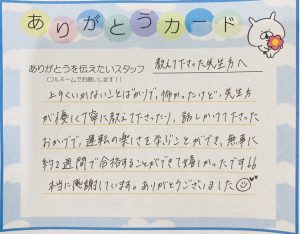 ありがとうカード
ありがとうを伝えたいスタッフ 教えて下さった先生方へ
(フルネームでお願いします!)
上手くいかないことばかりで、怖かったけど、先生方
が優しく丁寧に教えて下さったり、話しかけて下さった
おかげで、運転の楽しさを学ぶことができ、無事に
約2週間で合格することができて嬉しかったです!!
本当に感謝しています。ありがとうございました